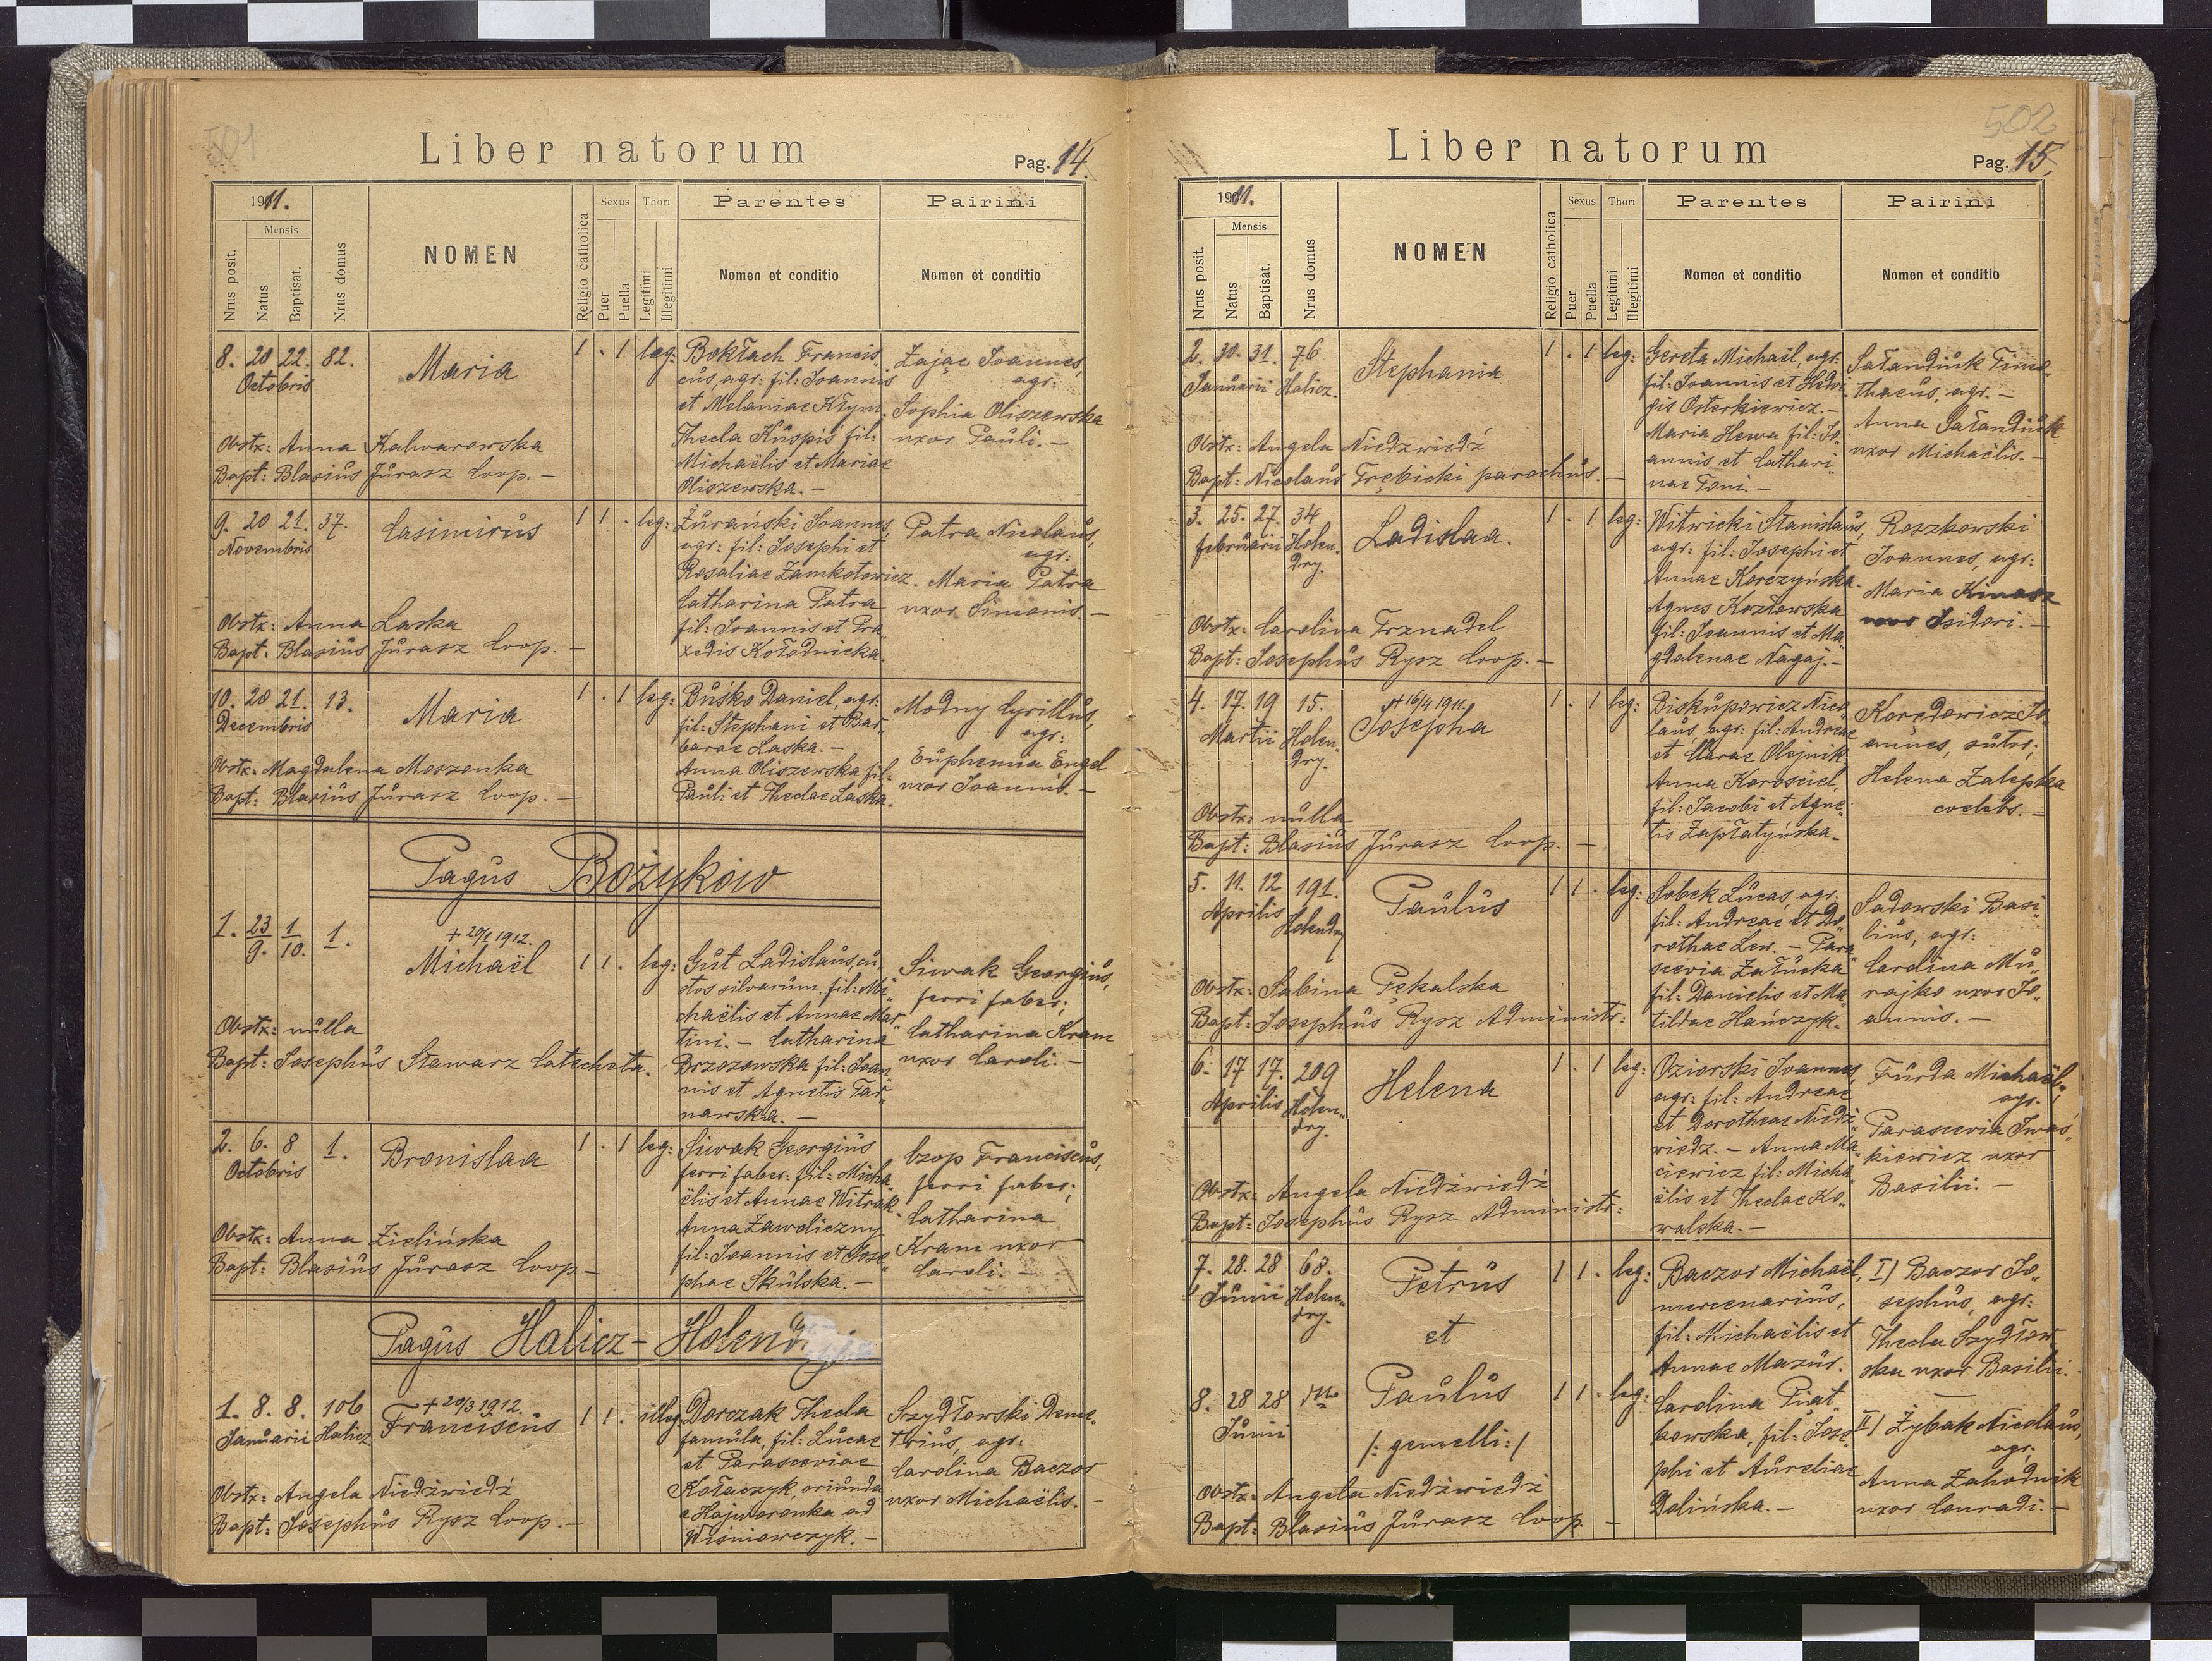 501
Liber natorum
Pag. 14.
1911.
Nrus posit.
Mensis
Natus
Baptisat.
Nrus domus
NOMEN
Religio catholica
Sexus
Puer
Puella
Thori
Legitimi
Illegitimi
Parentes
Nomen et conditio
Pairini
Nomen et conditio
8. 20 22. 82.
Octobris
Maria
1 . 1 leg:
Boktach Francis-
cus, agr: fil: Joannis
et Melaniae Kłym.
Thecla Kuspiś fil:
Michaëlis et Mariae
Oliszewska. –
Zając Joannes,
agr:
Sophia Oliszewska
uxor Pauli. –
Obstx: Anna Kalwarowska
Bapt: Blasius Jurasz Coop. –
9. 20 21. 37.
Novembris
Casimirus
1 1 . leg:
Żurański Joannes,
agr: fil: Josephi et
Rosaliae Zamkotowicz.
Catharina Patra
fil: Joannis et Pra-
xedis Kołodnicka.
Patra Nicolaus,
agr:
Maria Patra
uxor Simonis. –
Obstx: Anna Laska
Bapt: Blasius Jurasz Coop. –
10. 20 21. 13.
Decembris
Maria
1 . 1 leg:
Buśko Daniel, agr:
fil: Stephani et Bar-
barae Laska. –
Anna Oliszewska fil:
Pauli et Theclae Laska.
Modny Cyrillus,
agr:
Euphemia Engel
uxor Joannis. –
Obstx: Magdalena Moszonka
Bapt: Blasius Jurasz Coop. –
Pagus Bożyków
1. 23/9. 1/10. 1.
+ 20/1 1912.
Michaël
1 1 . leg:
Gut Ladislaus, cu-
stos silvarum, fil: Mi-
chaëlis et Annae Mar-
tini. – Catharina
Brzozowska fil: Joan-
nis et Agnetis Tar-
nawska. –
Siwak Georgius,
ferri faber;
Catharina Kram
uxor Caroli. –
Obstx: nulla
Bapt: Josephus Stawarz Catecheta.
2. 6. 8 1.
Octobris
Bronislaa
1 . 1 leg:
Siwak Georgius
ferri faber: fil: Micha-
ëlis et Annae Witrak.
Anna Zawoliczny
fil: Joannis et Jose-
phae Skulska. –
Czop Franciscus,
ferri faber;
Catharina
Kram uxor
Caroli. –
Obstx: Anna Zielińska
Bapt: Blasius Jurasz Coop –
Pagus Halicz – Holend
1. 8. 8. 106
Januarii Halicz
+ 20/3 1912.
Franciscus
1 1 . illeg:
Dorczak Thecla
famula, fil: Lucae
et Parasceviae
Kołaczyk, oriunda
e Hajworonka ad
Wiśniowczyk. –
Szydłowski Deme-
trius, agr:
Carolina Baczor
uxor Michaëlis. –
Obstx: Angela Niedźwiedź
Bapt: Josephus Rysz Coop. –
502
Liber natorum
Pag. 15.
1911.
Nrus posit.
Mensis
Natus
Baptisat.
Nrus domus
NOMEN
Religio catholica
Sexus
Puer
Puella
Thori
Legitimi
Illegitimi
Parentes
Nomen et conditio
Pairini
Nomen et conditio
2. 30. 31. 76
Januarii Halicz.
Stephania
1 . 1 leg:
Gereta Michaël, agr:
fil: Joannis et Hedvi-
gis Osterkiewicz. –
Maria Hewa fil: Jo-
annis et Cathari-
nae Toni. –
Sałandiuk Timo-
thaeus, agr. –
Anna Sałandiuk
uxor Michaëlis. –
Obstx: Angela Niedzwiedź
Bapt: Nicolaus Trębicki parochus. –
3. 25. 27. 34
Februarii Holen-
dry.
Ladislaa.
1 . 1 leg:
Witwicki Stanislaus,
agr: fil: Josephi et
Annae Korczyńska.
Agnes Kozłowska
fil: Joannis et Ma-
gdalenae Nagaj. –
Roszkowski
Joannes, agr:
Maria Kinasz
uxor Isidori. –
Obstx: Carolina Trznadel
Bapt: Josephus Rysz Coop. –
4. 17. 19 15.
Martii Holen-
dry.
+ 16/4 1911.
Josepha
1 . 1 leg:
Biskupowicz Nico-
laus, agr: fil: Andreae
et Clarae Olejnik.
Anna Korościel,
fil: Jacobi et Agne-
tis Zapłatyńska –
Korodowicz Jo-
annes, sutor;
Helena Zalepka
coelebs. –
Obstx: nulla
Bapt: Blasius Jurasz Coop. –
5. 11. 12 191.
Aprilis Holendry
Paulus
1 1 . leg:
Sobek Lucas, agr:
fil: Andreae et Do-
rothae Lew. – Para-
scevia Załucka
fil: Danielis et Ma-
tildae Hańczyk.
Sadowski Basi-
lius, agr:
Carolina Mu-
rajko uxor Jo-
annis. –
Obstx: Sabina Pękalska
Bapt: Josephus Rysz Administr:
6. 17 17. 209
Aprilis Holen-
dry.
Helena
1 . 1 leg:
Oziorski Joannes,
agr: fil: Andreae
et Dorotheae Niedź-
wiedz. – Anna Ma-
ciewicz fil: Micha-
ëlis et Theclae Ko-
walska. –
Furda Michaël,
agr:
Parascevia Iwaś-
kiewicz uxor
Basilii. –
Obstx: Angela Niedźwiedź
Bapt: Josephus Rysz Administr:
7. 28. 28 68.
Junii Holen-
dry.
Petrus
1 1 . leg:
et
8. 28 28
Junii
Paulus
1 1 . leg:
/: gemelli :/
Baczor Michaël,
mercenarius,
fil: Michaëlis et
Annae Mazur.
Carolina Piąt-
kowska, fil: Jose-
phi et Aureliae
Dolińska. –
I) Baczor Jo-
sephus, agr:
Thecla Szydłow-
ska uxor Basilii.
–
II) Żybak Nicolaus,
agr:
Anna Zahodnik
uxor Conradi. –
Obstx: Angela Niedźwiedź
Bapt: Blasius Jurasz Coop. –